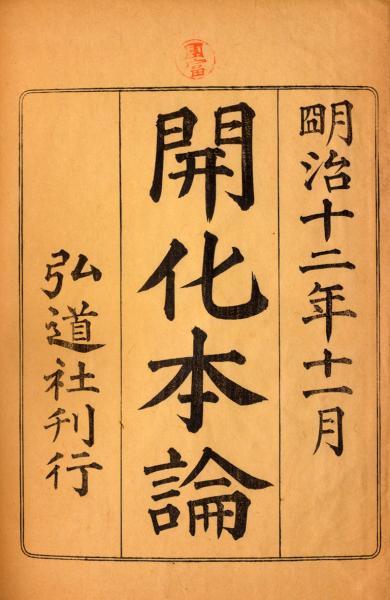 明治十二年十一月
開化本論
弘道社刊行